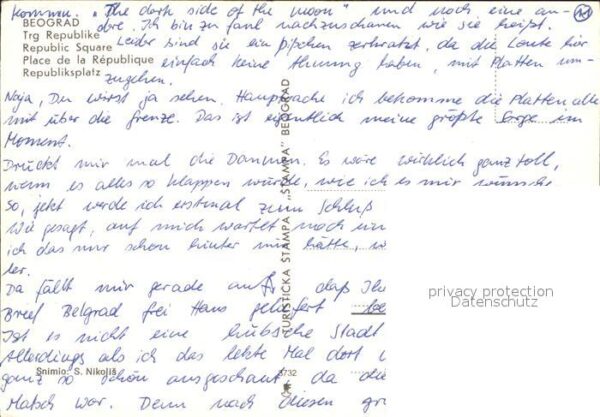 kommen. "The dark side of the moon" und noch eine an-
dere. Ich bin zu faul nachzuschauen wie sie heißt.
BEOGRAD
Trg Republike
Republic Square
Place de la République
Republiksplatz
Leider sind sie ein bißchen zerkratzt, da die Leute hier
einfach keine Ahnung haben, mit Platten um-
zugehen.
Naja, Du wirst ja sehen. Hauptsache ich bekomme die Platten alle
mit über die Grenze. Das ist eigentlich meine größte Sorge im
Moment.
Drückt mir mal die Daumen. Es wäre wirklich ganz toll,
wenn es alles so klappen würde, wie ich es mir wünsche
So, jetzt werde ich erstmal zum Schluß
Wie gesagt, auf mich wartet noch
ich das nur schon hinter mir hätte,
ler.
Da fällt mir gerade auf, daß Ihr
Brief Belgrad frei Haus geliefert
Ist es nicht eine hübsche Stadt
Allerdings als ich das letzte Mal dort
ganz so schön ausgeschaut da die
Matsch war. Denn nach diesen
TURISTICKA STAMPA „STAMPA" BEOGRAD
Snimio: S. Nikolić
3732
privacy protection
Datenschutz